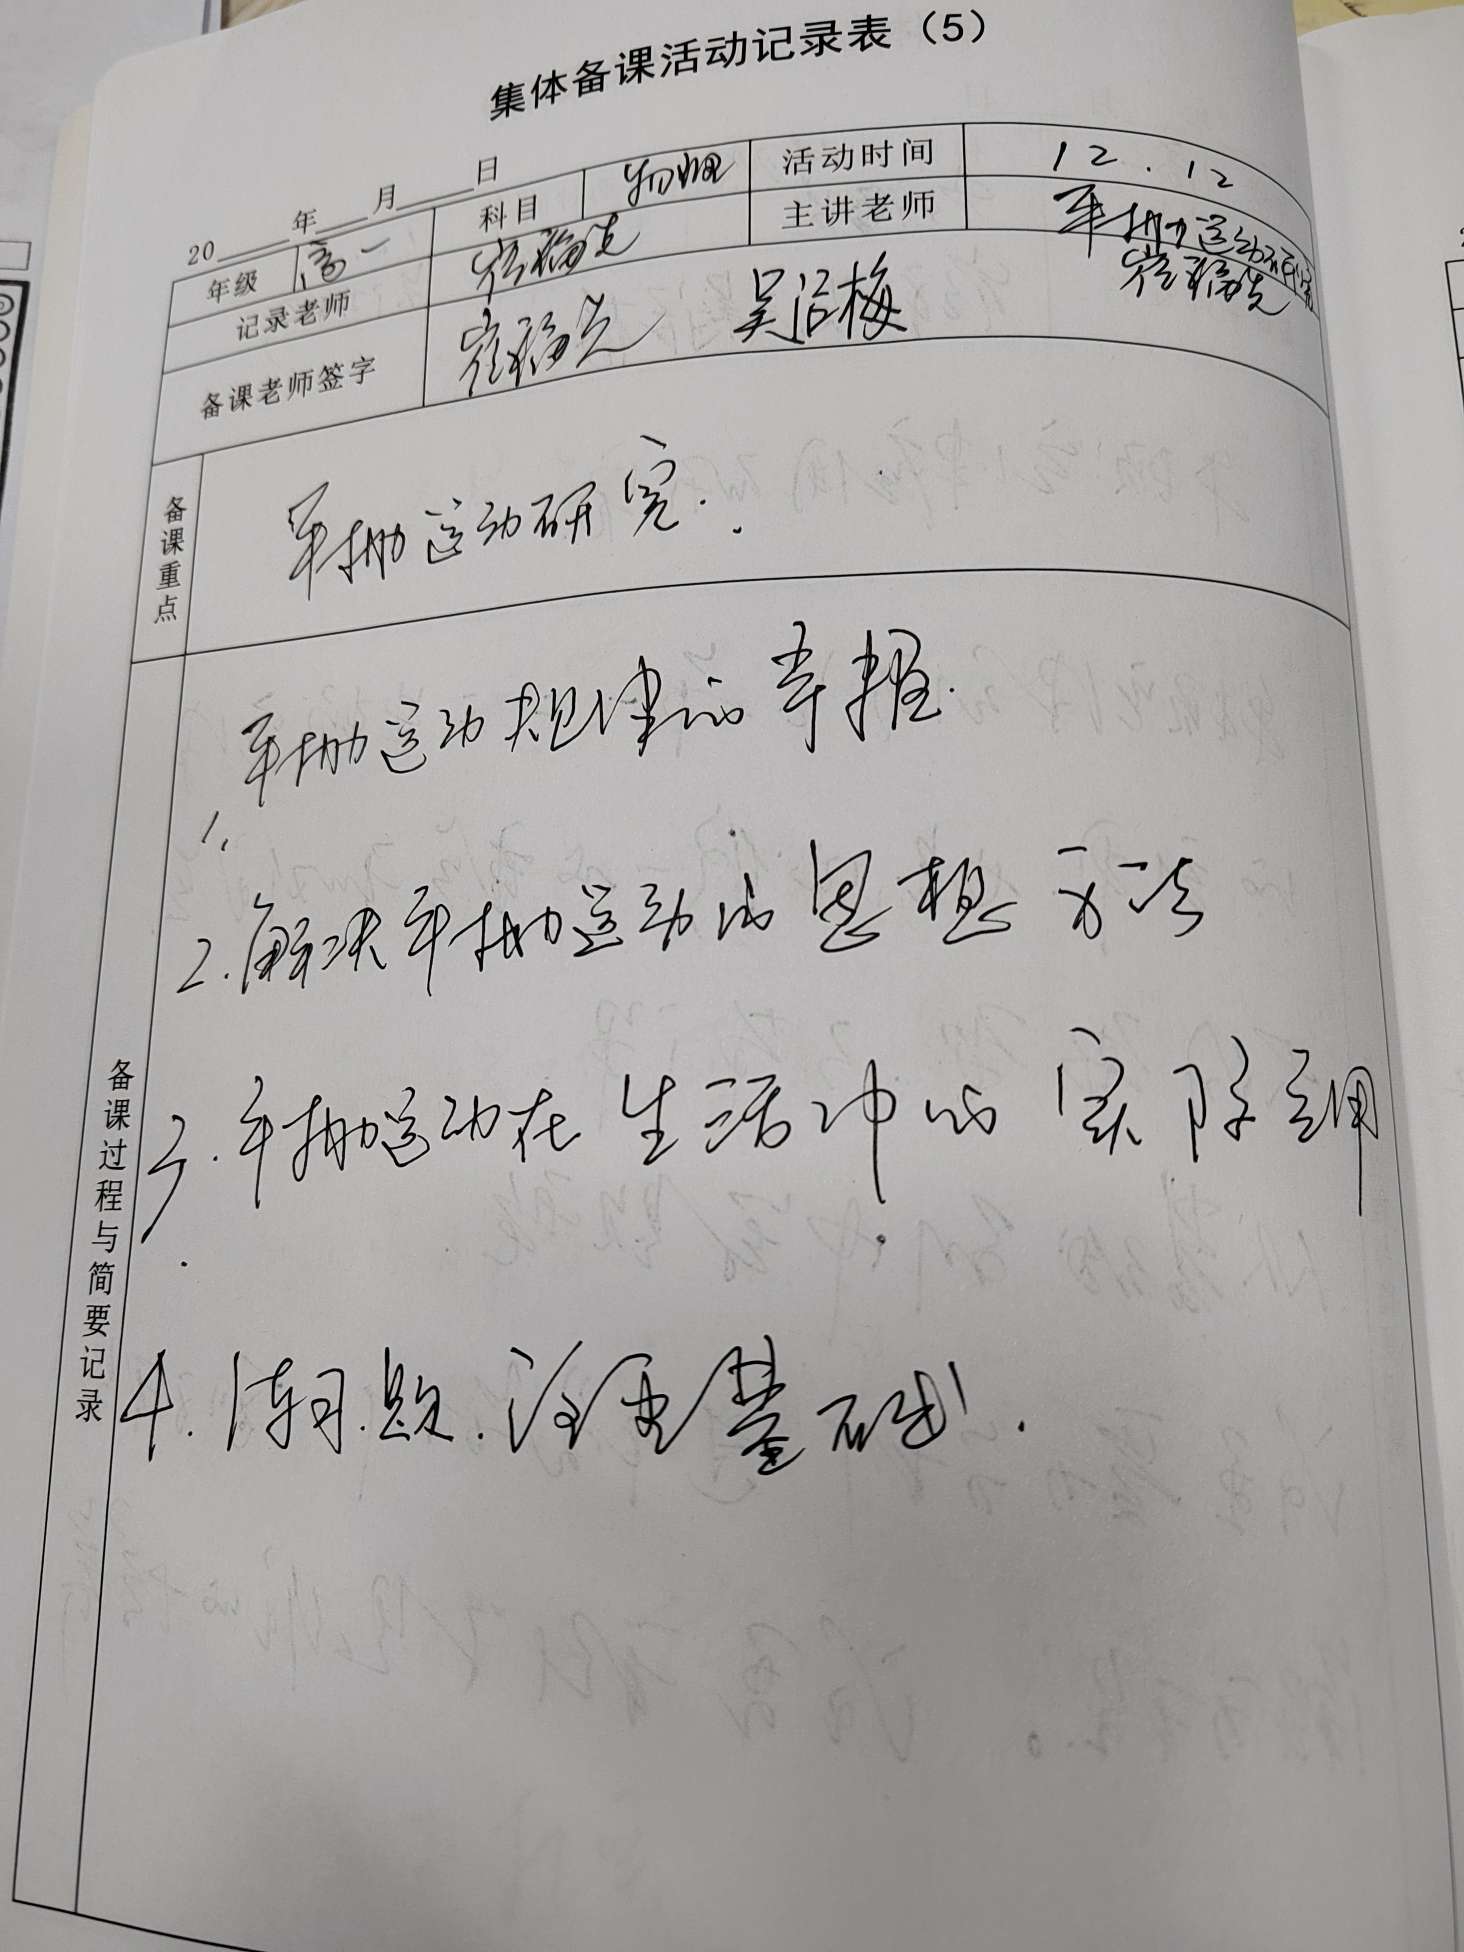 集体备课活动记录表（5）
20 年 月 日
年级 高一 科目 物理 活动时间 12.12
平抛运动研究
记录老师 崔福先 主讲老师 崔福先
备课老师签字 崔福先 吴治梅
备课重点
平抛运动研究.
备课过程与简要记录
1. 平抛运动规律的掌握.
2.解决平抛运动的思想方法
3.平抛运动在生活中的实际应用.
4.练习题.注重基础.